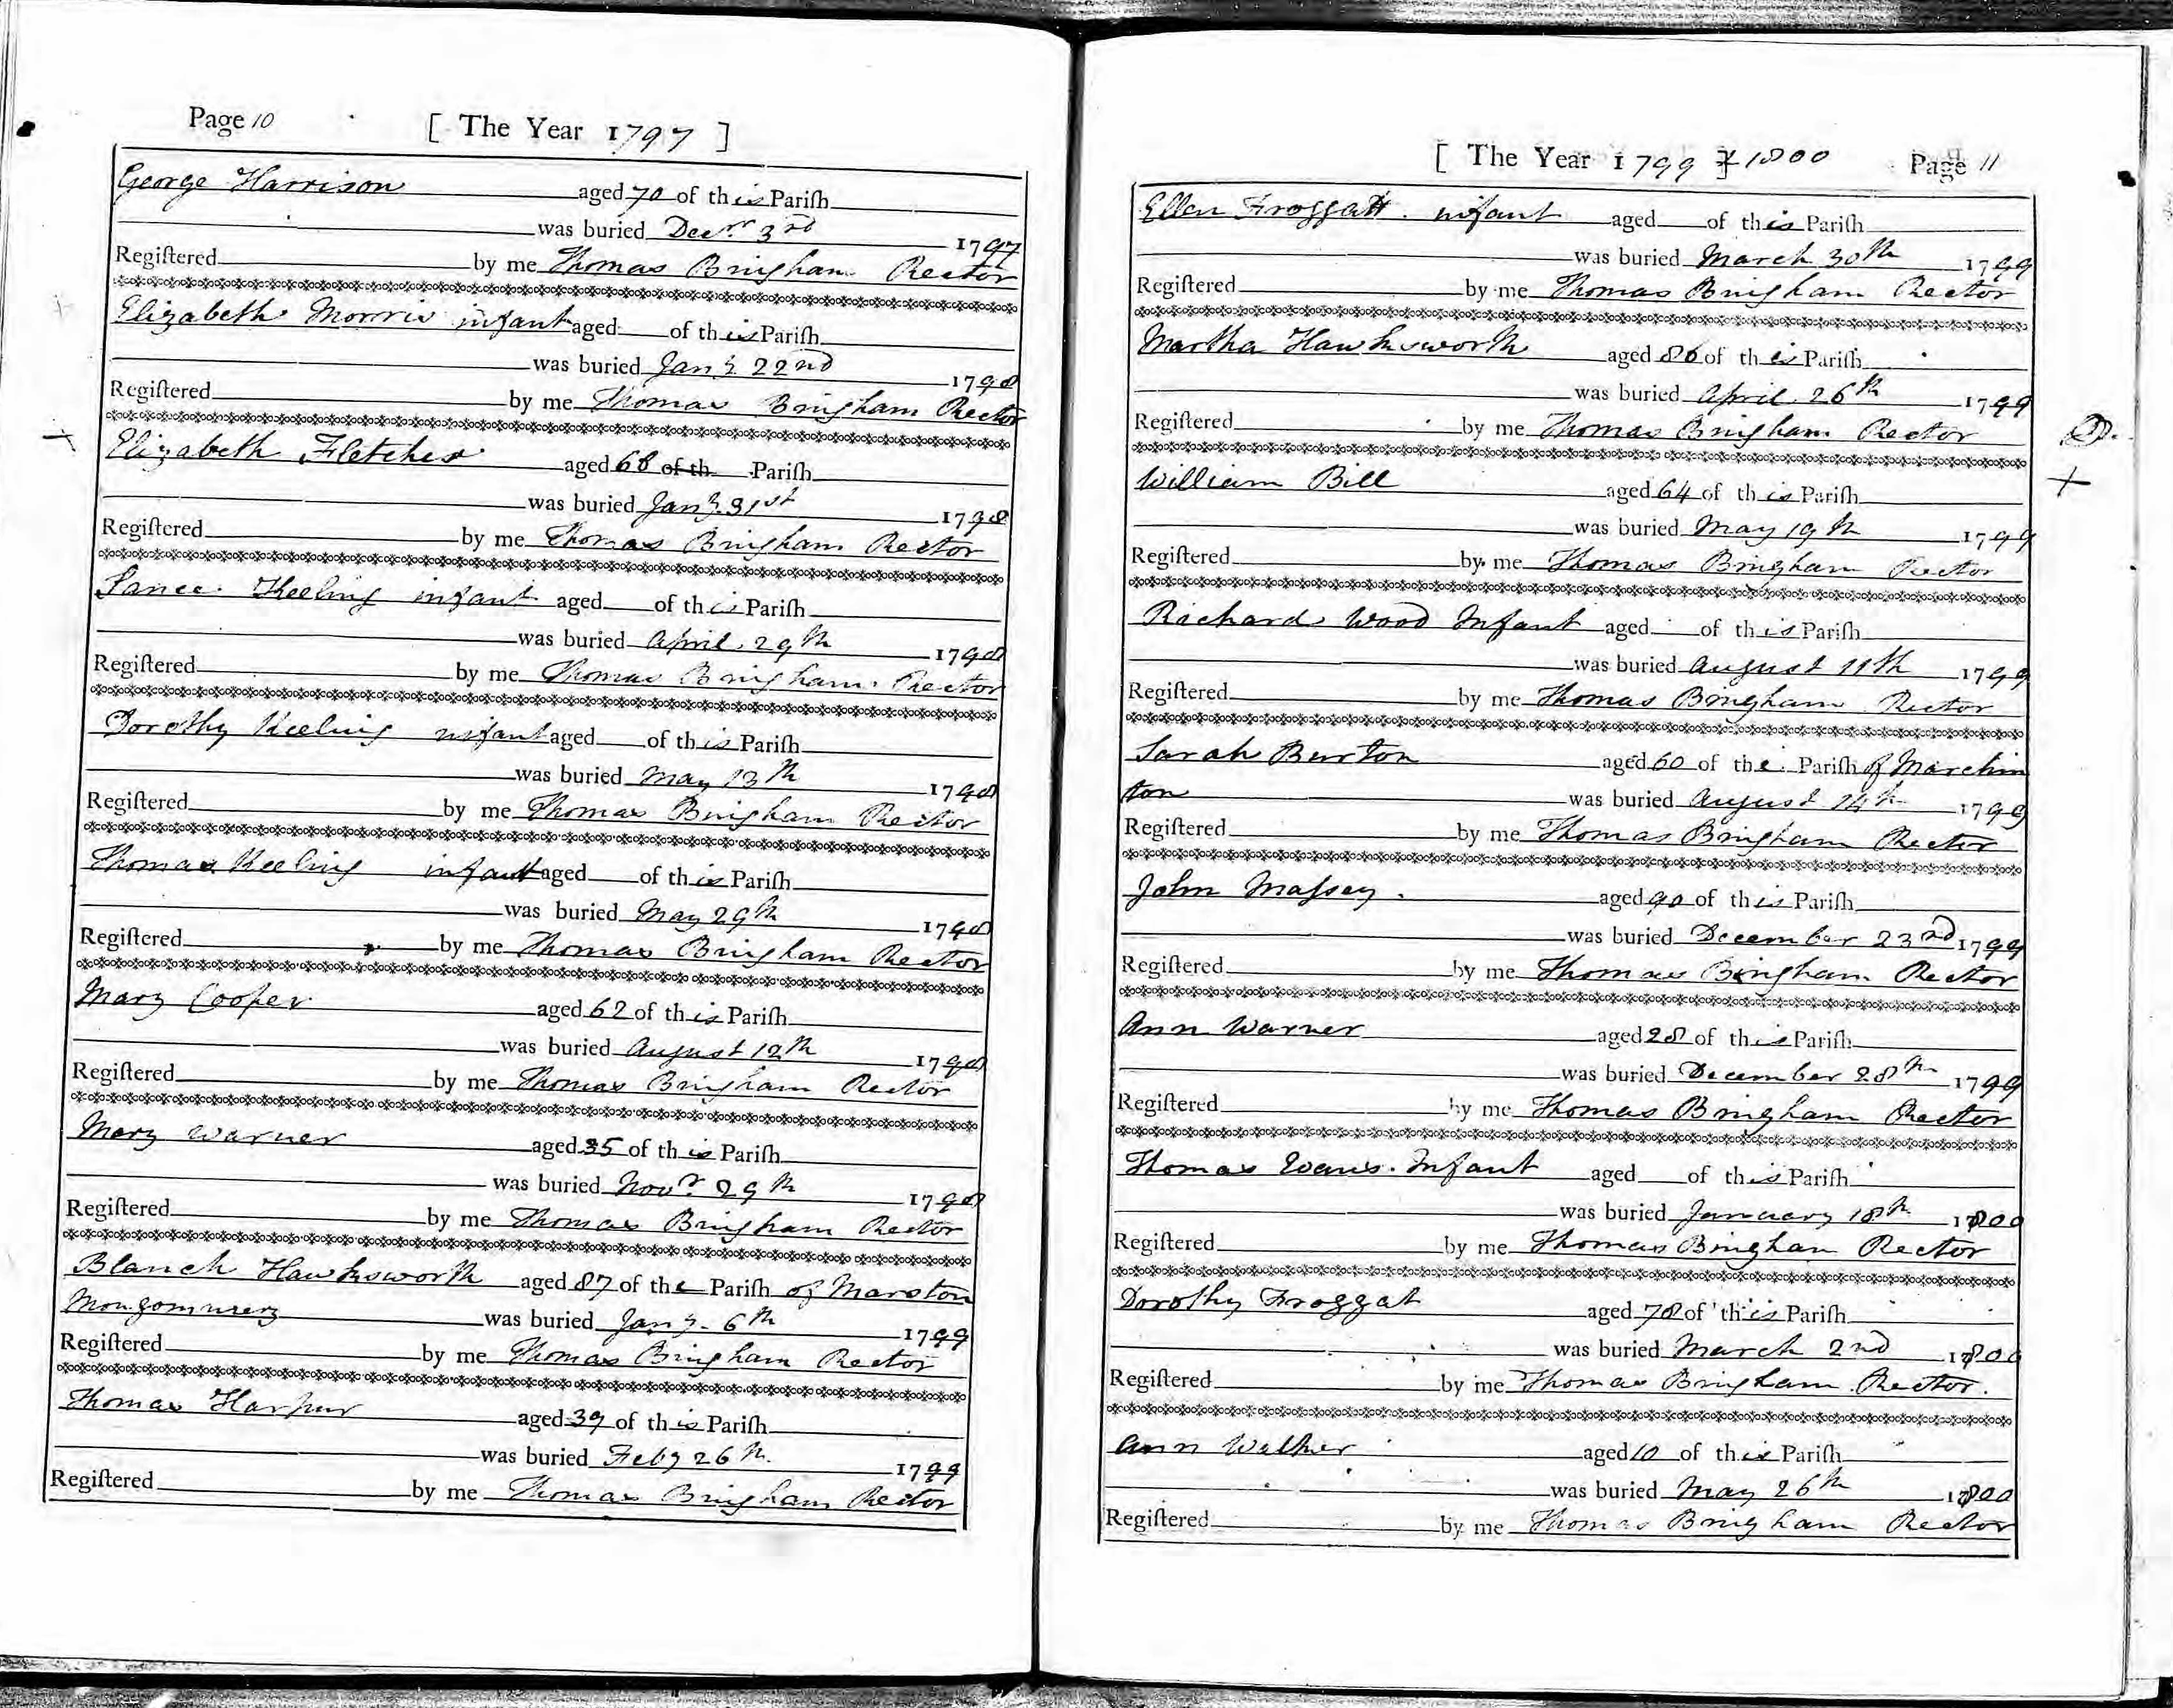 Page 10 [ The Year 1797 ]
George Harrison aged 70 of this Pariſh
was buried Decr. 3rd 1797
Regiſtered by me Thomas Bingham Rector
Elizabeth Morris infant aged of this Pariſh
was buried Jany. 22nd 1798
Regiſtered by me Thomas Bingham Rector
Elizabeth Fletcher aged 68 of th Pariſh
was buried Jany. 31st 1798
Regiſtered by me Thomas Bingham Rector
Keeling infant aged of this Pariſh
was buried April. 29th 1798
Regiſtered by me Thomas Bingham Rector
Dorothy Keeling infant aged of this Pariſh
was buried May 13th 1798
Regiſtered by me Thomas Bingham Rector
Thomas Keeling infant aged of this Pariſh
was buried May 29th 1798
Regiſtered by me Thomas Bingham Rector
Mary Cooper aged 62 of this Pariſh
was buried August 12th 1798
Regiſtered by me Thomas Bingham Rector
Mary Warner aged 35 of this Pariſh
was buried Novr. 29th 1798
Regiſtered by me Thomas Bingham Rector
Blanch Hawksworth aged 87 of the Pariſh of Marston
Mongomurery was buried Jany. 6th 1799
Regiſtered by me Thomas Bingham Rector
Thomas Harpur aged 39 of this Pariſh
was buried Feby 26th. 1799
Regiſtered by me Thomas Bingham Rector
[ The Year 1799 & 1800 Page 11
Ellen Froggatt. infant aged of this Pariſh
was buried March 30th 1799
Regiſtered by me Thomas Bingham Rector
Martha Hawksworth aged 86 of this Pariſh
was buried April. 26th 1799
Regiſtered by me Thomas Bingham Rector
William Bill aged 64 of this Pariſh
was buried May 19th 1799
Regiſtered by me Thomas Bingham Rector
Richard Wood Infant aged of this Pariſh
was buried August 11th 1799
Regiſtered by me Thomas Bingham Rector
Sarah Burton aged 60 of the Pariſh of Marchin
ton was buried August 14th 1799
Regiſtered by me Thomas Bingham Rector
John Maſsey. aged 90 of this Pariſh
was buried December 23rd 1799
Regiſtered by me Thomas Bingham Rector
Ann Warner aged 28 of this Pariſh
was buried December 28th 1799
Regiſtered by me Thomas Bingham Rector
Thomas Evans. Infant aged of this Pariſh
was buried January 18th 1800
Regiſtered by me Thomas Bingham Rector
Dorothy Froggat aged 78 of this Pariſh
was buried March 2nd 1800
Regiſtered by me Thomas Bingham Rector.
Ann Walker aged 10 of this Pariſh
was buried May 26th 1800
Regiſtered by me Thomas Bingham Rector